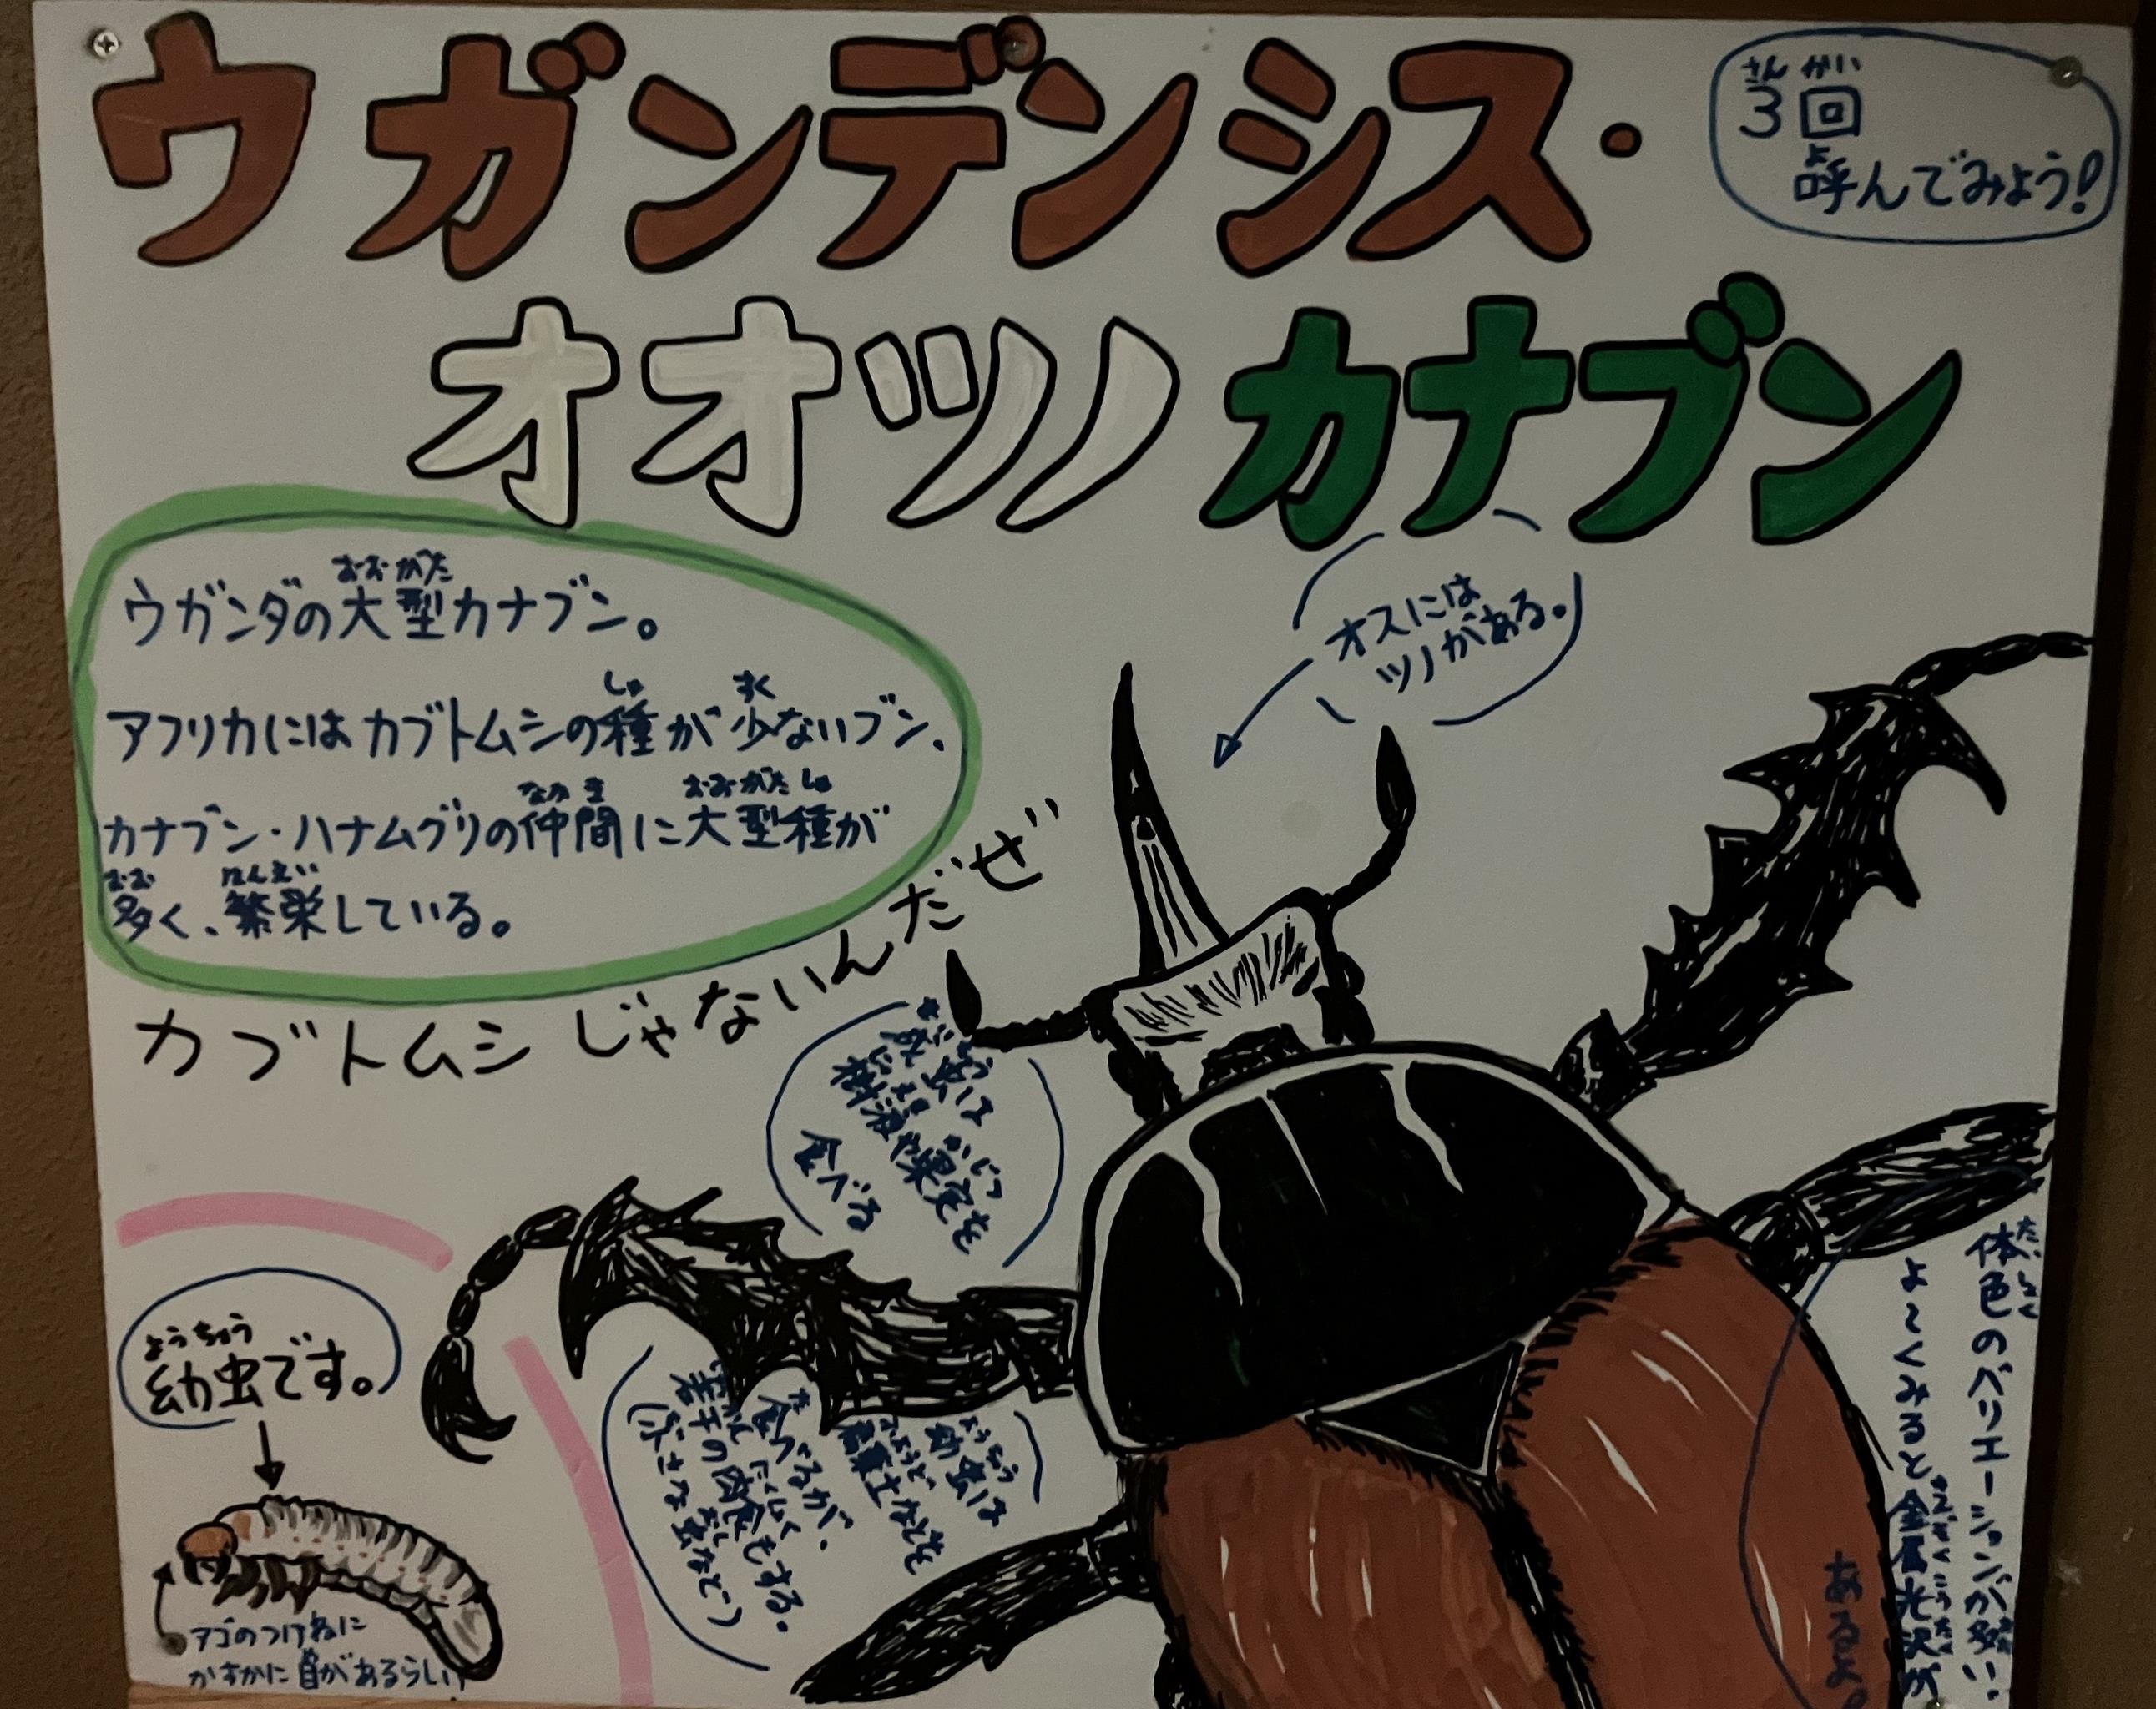 ウガンデンシス・
オオツノカナブン
3回
呼んでみよう!
ウガンダの大型カナブン。
アフリカにはカブトムシの種が少ないブン、
カナブン・ハナムグリの仲間に大型種が
多く、繁栄している。
カブトムシじゃないんだぜ
オスには
ツノがある。
成虫は
樹液や果実を
食べる
幼虫は
腐葉土などを
食べるが、
若干の肉食もする。
(小さな虫など)
体色のバリエーションが多い。
よ〜くみると金属光沢が
あるよ。
幼虫です。
アゴのつけねに
かすかに目があるらしい